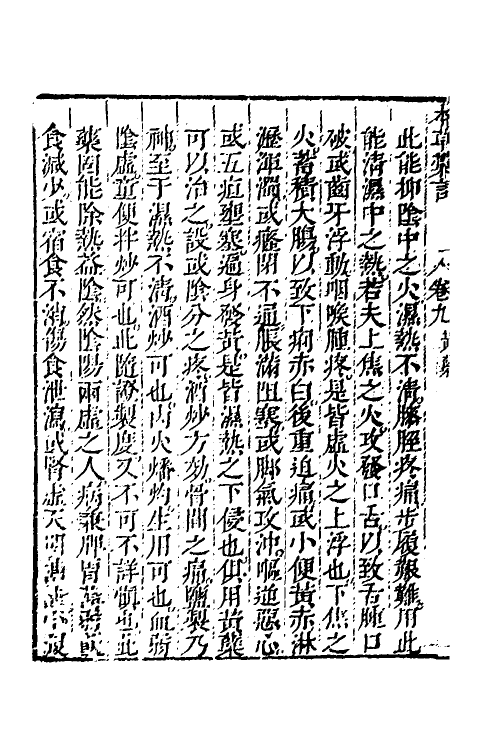 本草彙言 卷九 黃蘗
此能抑陰中之火濕熱不清膝脛疼痛步履艱難用此
能清濕中之熱若夫上焦之火攻發口舌以致舌腫口
破或齒牙浮動咽喉腫疼是皆虛火之上浮也下焦之
火蓄積大腸以致下痢赤白後重迫痛或小便黃赤淋
瀝渾濁或癃閉不通脹滿阻塞或脚氣攻沖嘔逆惡心
或五疸壅塞遍身發黃是皆濕熱之下侵也俱用黃蘗
可以治之設或陰分之疼酒炒方効骨間之痛鹽製乃
神至于濕熱不清酒炒可也內火燔灼生用可也血弱
陰虛童便拌炒可也此隨證製度又不可不詳愼也此
藥固能除熱益陰然陰陽兩虛之人病兼脾胃薄弱或
食減少或宿食不消傷食泄瀉或腎虛天明